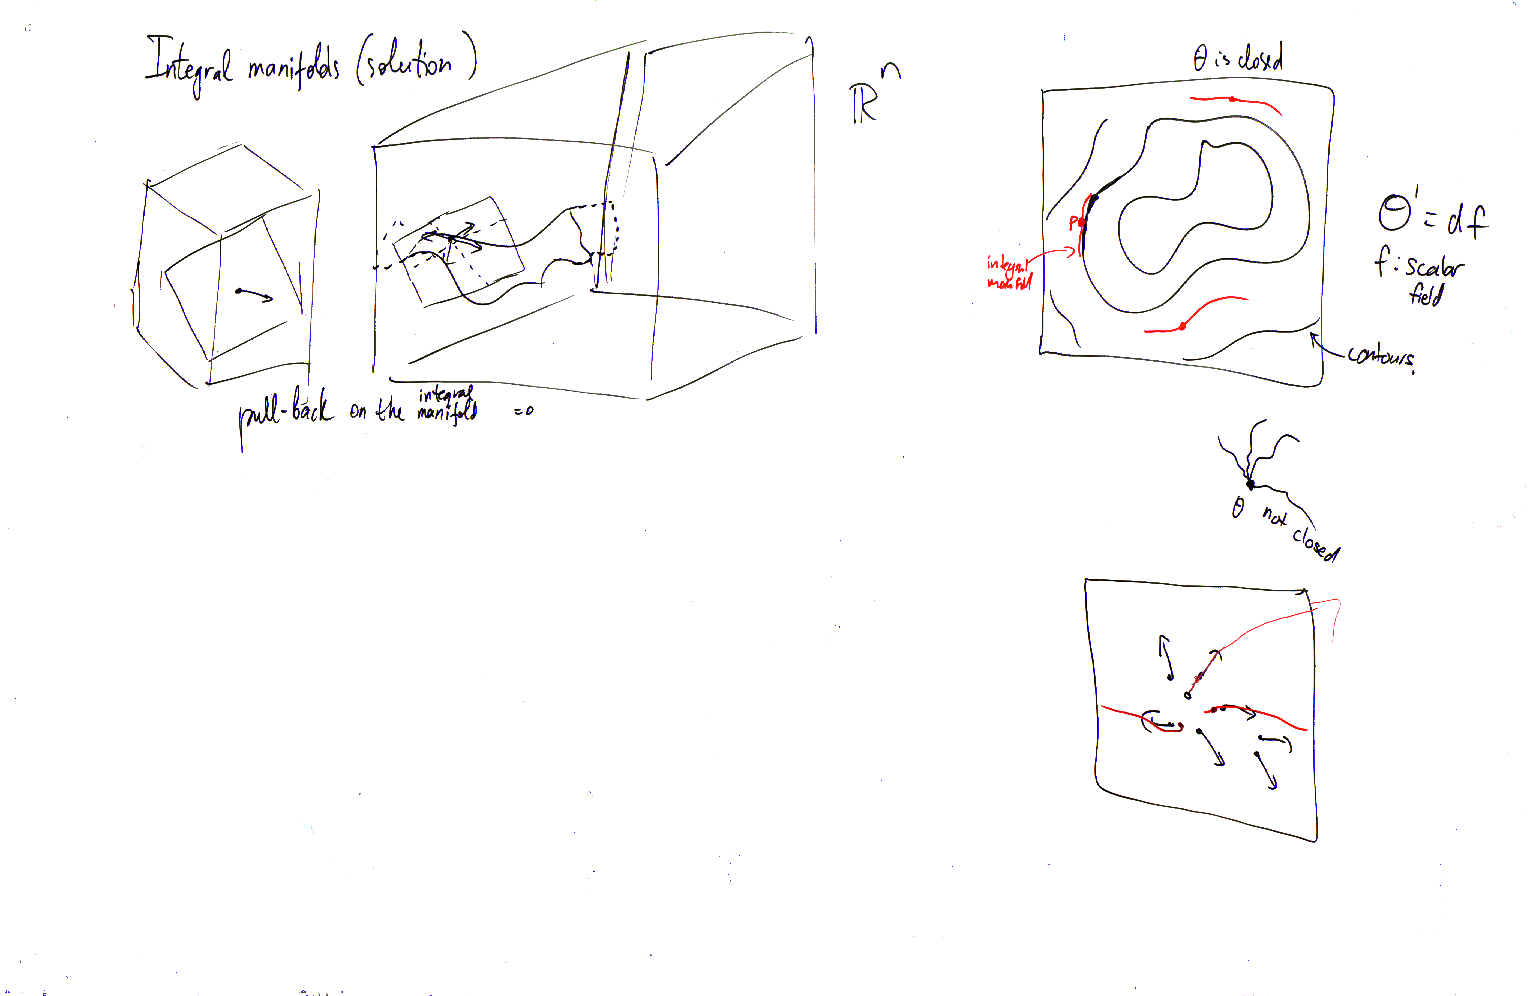 Integral manifolds (solution)
ℝⁿ
pull-back on the integral manifold =0
θ is closed
P
integral
manifold
Θ' = df
f: scalar
field
contours.
θ not closed